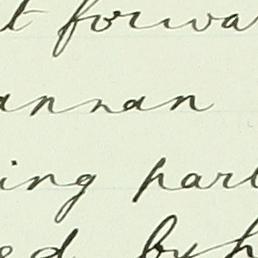 t forwa
annan
ing part
ed by h